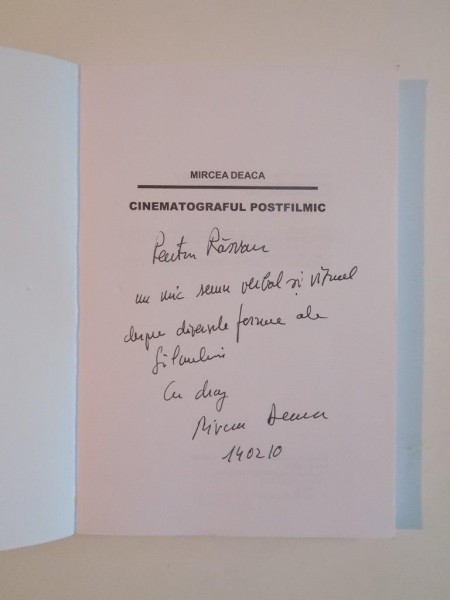 MIRCEA DEACA
CINEMATOGRAFUL POSTFILMIC
Pentru Răsvan
un mic semn verbal și vizual
despre diversele forme ale
filmului
Cu drag
Mircea Deaca
140210